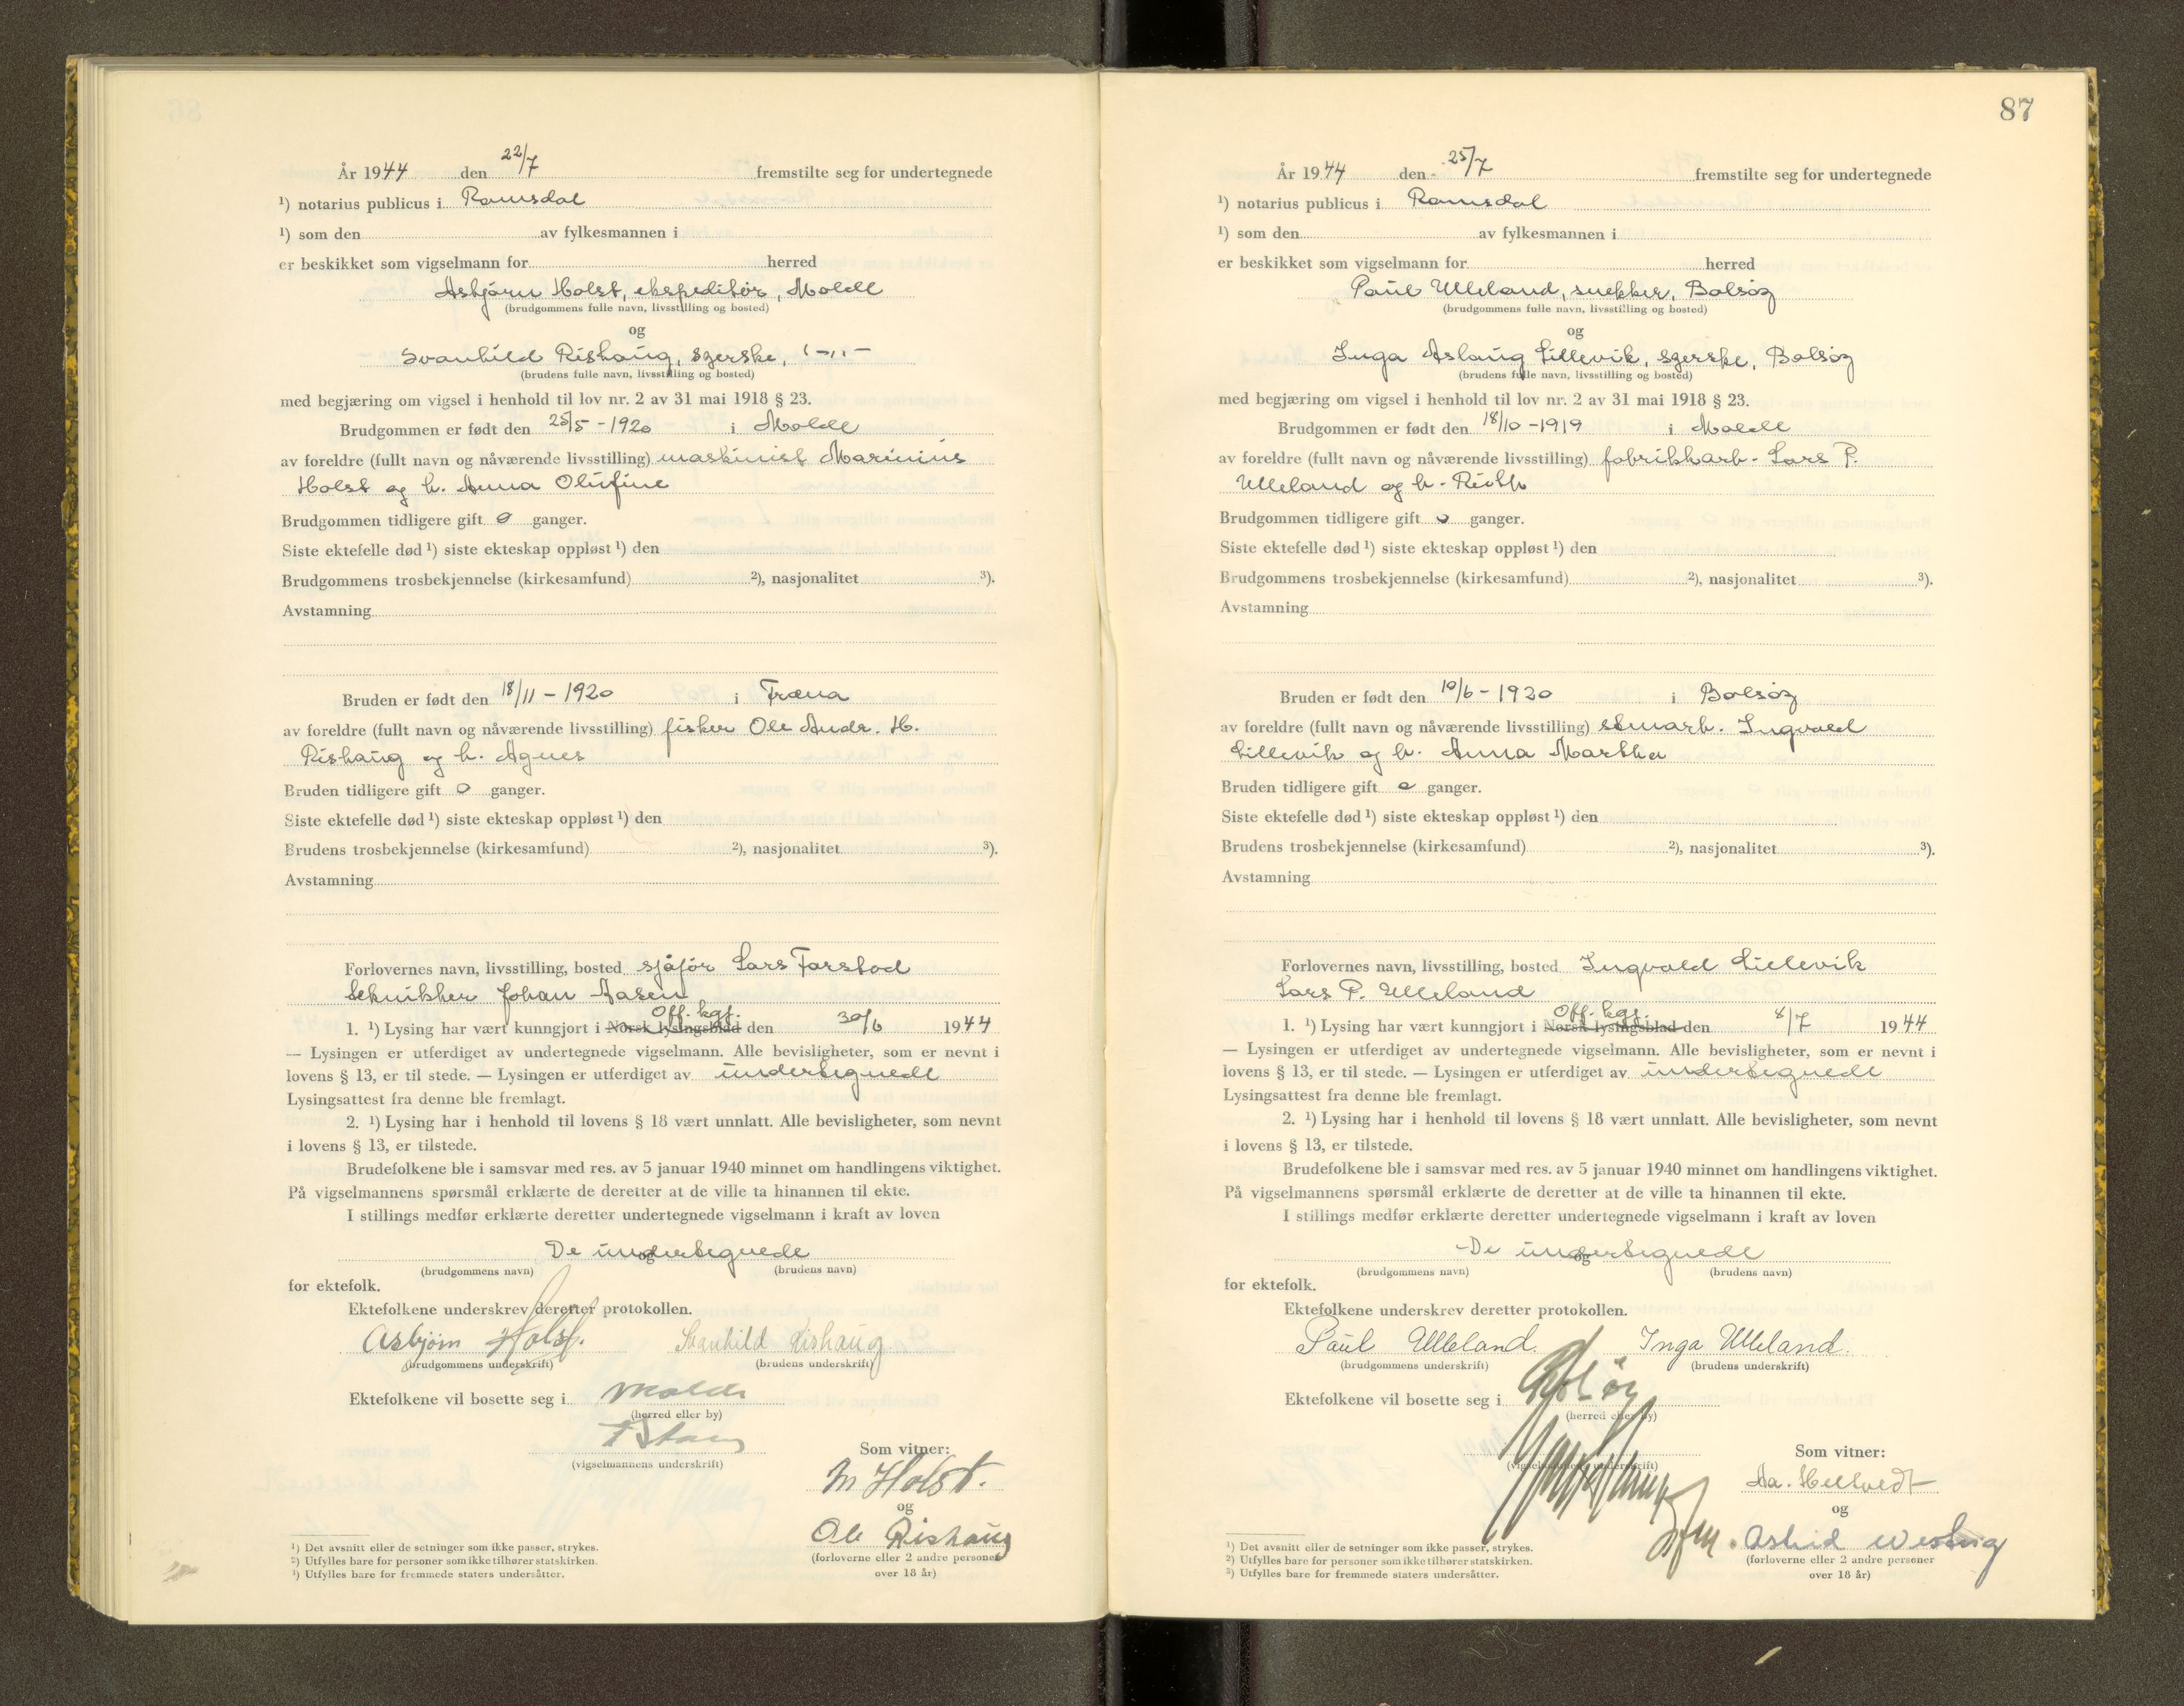 År 1944 den 22/7 fremstilte seg for undertegnede
¹) notarius publicus i Romsdal
¹) som den av fylkesmannen i
er beskikket som vigselmann for herred
Asbjørn Holst, ekspeditør, Molde
(brudgommens fulle navn, livsstilling og bosted)
og
Svanhild Rishaug, syerske, -„-
(brudens fulle navn, livsstilling og bosted)
med begjæring om vigsel i henhold til lov nr. 2 av 31 mai 1918 § 23.
Brudgommen er født den 25/5 - 1920 i Molde
av foreldre (fullt navn og nåværende livsstilling) maskinist Marinius
Holst og h. Anna Olufine
Brudgommen tidligere gift 0 ganger.
Siste ektefelle død ¹) siste ekteskap oppløst ¹) den
Brudgommens trosbekjennelse (kirkesamfund) ²), nasjonalitet ³).
Avstamning
Bruden er født den 18/11 - 1920 i Fræna
av foreldre (fullt navn og nåværende livsstilling) fisker Ole Andr. H.
Rishaug og h. Agnes
Bruden tidligere gift 0 ganger.
Siste ektefelle død ¹) siste ekteskap oppløst ¹) den
Brudens trosbekjennelse (kirkesamfund) ²), nasjonalitet ³).
Avstamning
Forlovernes navn, livsstilling, bosted sjåfør Lars Farstad
tekniker Johan Aasen
Off. kgj.
1. ¹) Lysing har vært kunngjort i Norsk lysingsblad den 30/6 1944
— Lysingen er utferdiget av undertegnede vigselmann. Alle bevisligheter, som er nevnt i
lovens § 13, er til stede. — Lysingen er utferdiget av undertegnede
Lysingsattest fra denne ble fremlagt.
2. ¹) Lysing har i henhold til lovens § 18 vært unnlatt. Alle bevisligheter, som nevnt
i lovens § 13, er tilstede.
Brudefolkene ble i samsvar med res. av 5 januar 1940 minnet om handlingens viktighet.
På vigselmannens spørsmål erklærte de deretter at de ville ta hinannen til ekte.
I stillings medfør erklærte deretter undertegnede vigselmann i kraft av loven
De undertegnede
og
(brudgommens navn) (brudens navn)
for ektefolk.
Ektefolkene underskrev deretter protokollen.
Asbjørn Holst. Svanhild Rishaug
(brudgommens underskrift) (brudens underskrift)
Ektefolkene vil bosette seg i Molde
(herred eller by)
(vigselmannens underskrift)
Som vitner:
M Holst.
og
Ole Rishaug
(forloverne eller 2 andre personer
over 18 år)
¹) Det avsnitt eller de setninger som ikke passer, strykes.
²) Utfylles bare for personer som ikke tilhører statskirken.
³) Utfylles bare for fremmede staters undersåtter.
87
År 1944 den 25/7 fremstilte seg for undertegnede
¹) notarius publicus i Romsdal
¹) som den av fylkesmannen i
er beskikket som vigselmann for herred
Paul Ulleland, snekker, Bolsøy
(brudgommens fulle navn, livsstilling og bosted)
og
Inga Aslaug Lillevik, syerske, Bolsøy
(brudens fulle navn, livsstilling og bosted)
med begjæring om vigsel i henhold til lov nr. 2 av 31 mai 1918 § 23.
Brudgommen er født den 18/10 - 1919 i Molde
av foreldre (fullt navn og nåværende livsstilling) fabrikkarb. Lars P.
Ulleland og h. Ruth
Brudgommen tidligere gift 0 ganger.
Siste ektefelle død ¹) siste ekteskap oppløst ¹) den
Brudgommens trosbekjennelse (kirkesamfund) ²), nasjonalitet ³).
Avstamning
Bruden er født den 10/6 - 1920 i Bolsøy
av foreldre (fullt navn og nåværende livsstilling) Ingvald
Lillevik og h. Anna Martha
Bruden tidligere gift 0 ganger.
Siste ektefelle død ¹) siste ekteskap oppløst ¹) den
Brudens trosbekjennelse (kirkesamfund) ²), nasjonalitet ³).
Avstamning
Forlovernes navn, livsstilling, bosted Ingvald Lillevik
Lars P. Ulleland
Off. kgj.
1. ¹) Lysing har vært kunngjort i Norsk lysingsblad den 8/7 1944
— Lysingen er utferdiget av undertegnede vigselmann. Alle bevisligheter, som er nevnt i
lovens § 13, er til stede. — Lysingen er utferdiget av undertegnede
Lysingsattest fra denne ble fremlagt.
2. ¹) Lysing har i henhold til lovens § 18 vært unnlatt. Alle bevisligheter, som nevnt
i lovens § 13, er tilstede.
Brudefolkene ble i samsvar med res. av 5 januar 1940 minnet om handlingens viktighet.
På vigselmannens spørsmål erklærte de deretter at de ville ta hinannen til ekte.
I stillings medfør erklærte deretter undertegnede vigselmann i kraft av loven
De undertegnede
og
(brudgommens navn) (brudens navn)
for ektefolk.
Ektefolkene underskrev deretter protokollen.
Paul Ulleland. Inga Ulleland.
(brudgommens underskrift) (brudens underskrift)
Ektefolkene vil bosette seg i Bolsøy
(herred eller by)
(vigselmannens underskrift)
Som vitner:
Aa. Heltvedt
og
Astrid
(forloverne eller 2 andre personer
over 18 år)
¹) Det avsnitt eller de setninger som ikke passer, strykes.
²) Utfylles bare for personer som ikke tilhører statskirken.
³) Utfylles bare for fremmede staters undersåtter.